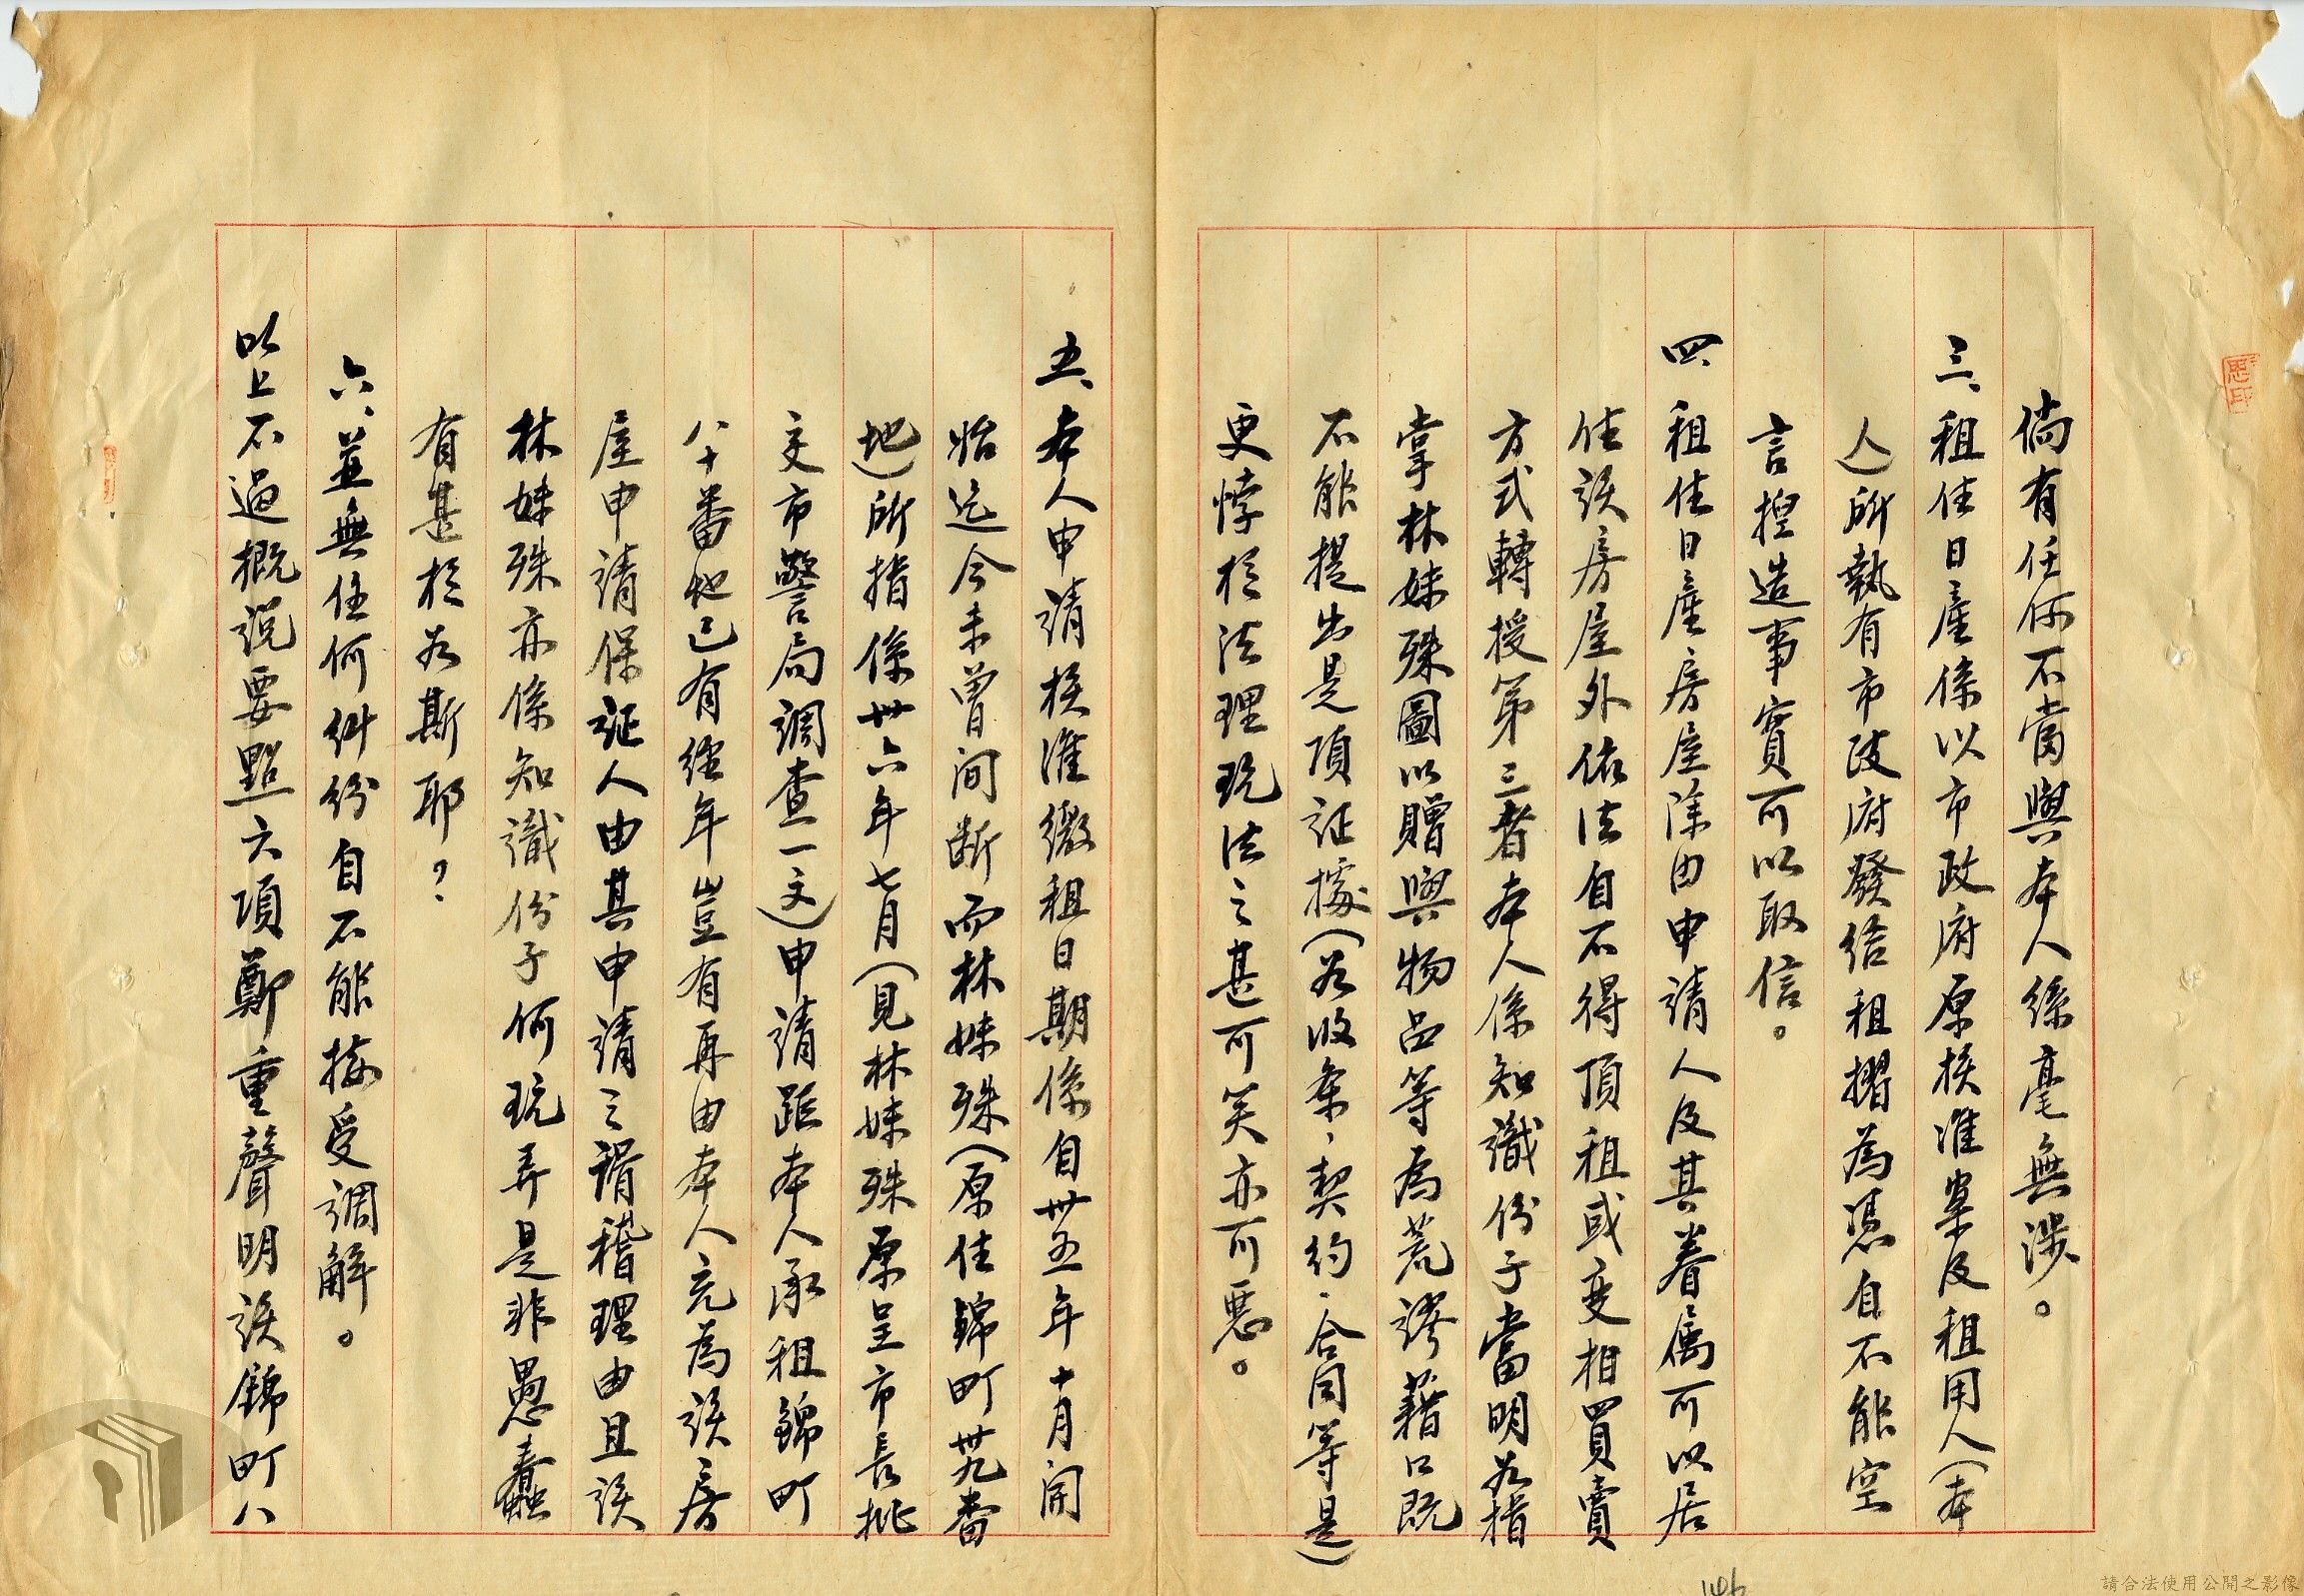 倘有任何不當與本人絲毫無涉。
三、租住日產係以市政府原核准案及租用人(本
人)所執有市政府發給租摺為憑自不能空
言揑造事實可以取信。
四、租住日產房屋除由申請人及其眷屬可以居
住該房屋外依法自不得頂租或變相買賣
方式轉授第三者本人係知識份子當明若指
掌林妹殊圖以贈與物品等為荒謬藉口既
不能提出是項証據(若收条、契約、合同等是)
更悖於法理玩法之甚可笑亦可惡。
五、本人申請核准繳租日期係自卅五年十月開
始迄今未曾間断而林妹殊(原住錦町卅九番
地)所指係卅六年七月(見林妹殊原呈市長批
交市警局調查一文)申請距本人承租錦町
八十番地已有經年豈有再由本人充為該房
屋申請保証人由其申請之謂稽理由且該
林妹殊亦係知識份子何玩弄是非愚蠢
有甚於若斯耶？
六、並無任何糾紛自不能接受調解。
以上不過概説要點六項鄭重聲明該錦町八
思印
146
請合法使用公開之影像